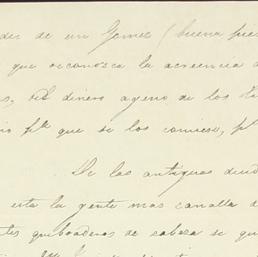 der de un Gomez (buena pie
que reconosca la acreencia d
s, del dinero ageno de los
io pa que se los comiese, pa
De las antiguas deud
esta la gente mas canalla d
tes quebraderos de cabeza se qu